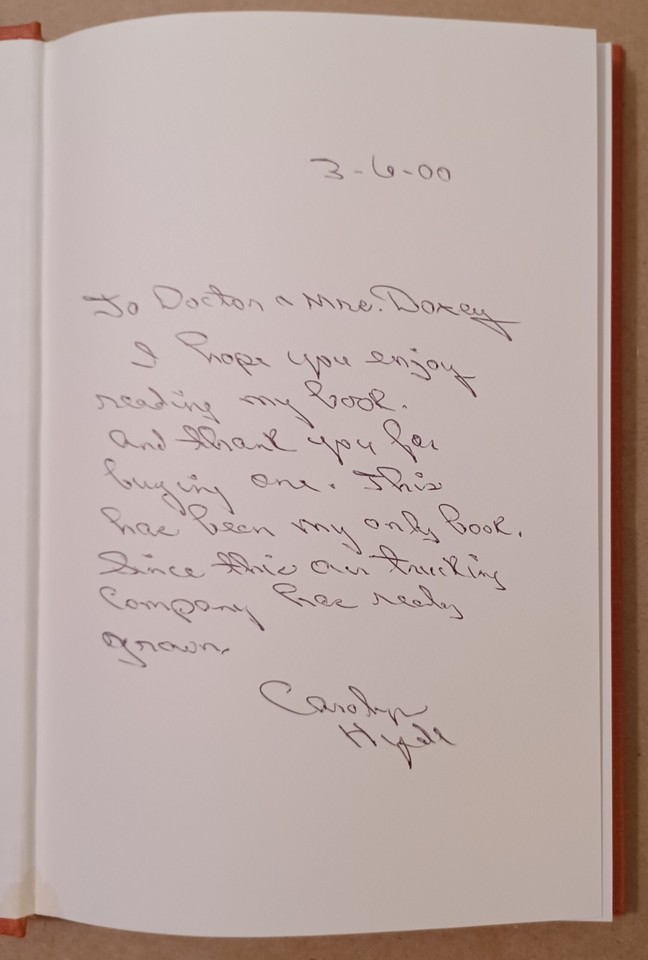 3-6-00
To Doctor & Mrs. Doxey
I hope you enjoy
reading my book.
And thank you for
buying one. This
has been my only book.
Since this our trucking
company has really
grown.
Carolyn